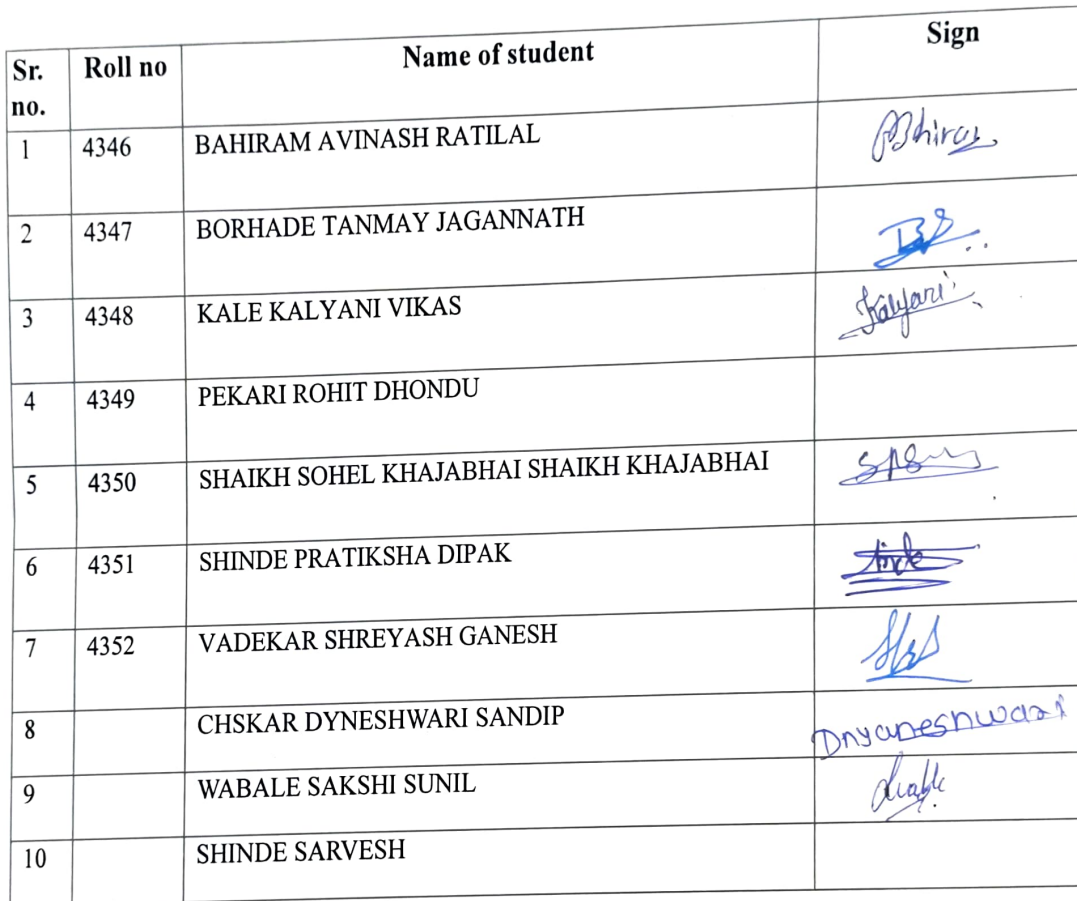 Sr. no. Roll no Name of student Sign
1 4346 BAHIRAM AVINASH RATILAL
2 4347 BORHADE TANMAY JAGANNATH
3 4348 KALE KALYANI VIKAS Kalyani
4 4349 PEKARI ROHIT DHONDU
5 4350 SHAIKH SOHEL KHAJABHAI SHAIKH KHAJABHAI
6 4351 SHINDE PRATIKSHA DIPAK
7 4352 VADEKAR SHREYASH GANESH
8 CHSKAR DYNESHWARI SANDIP Dnyaneshwari
9 WABALE SAKSHI SUNIL
10 SHINDE SARVESH